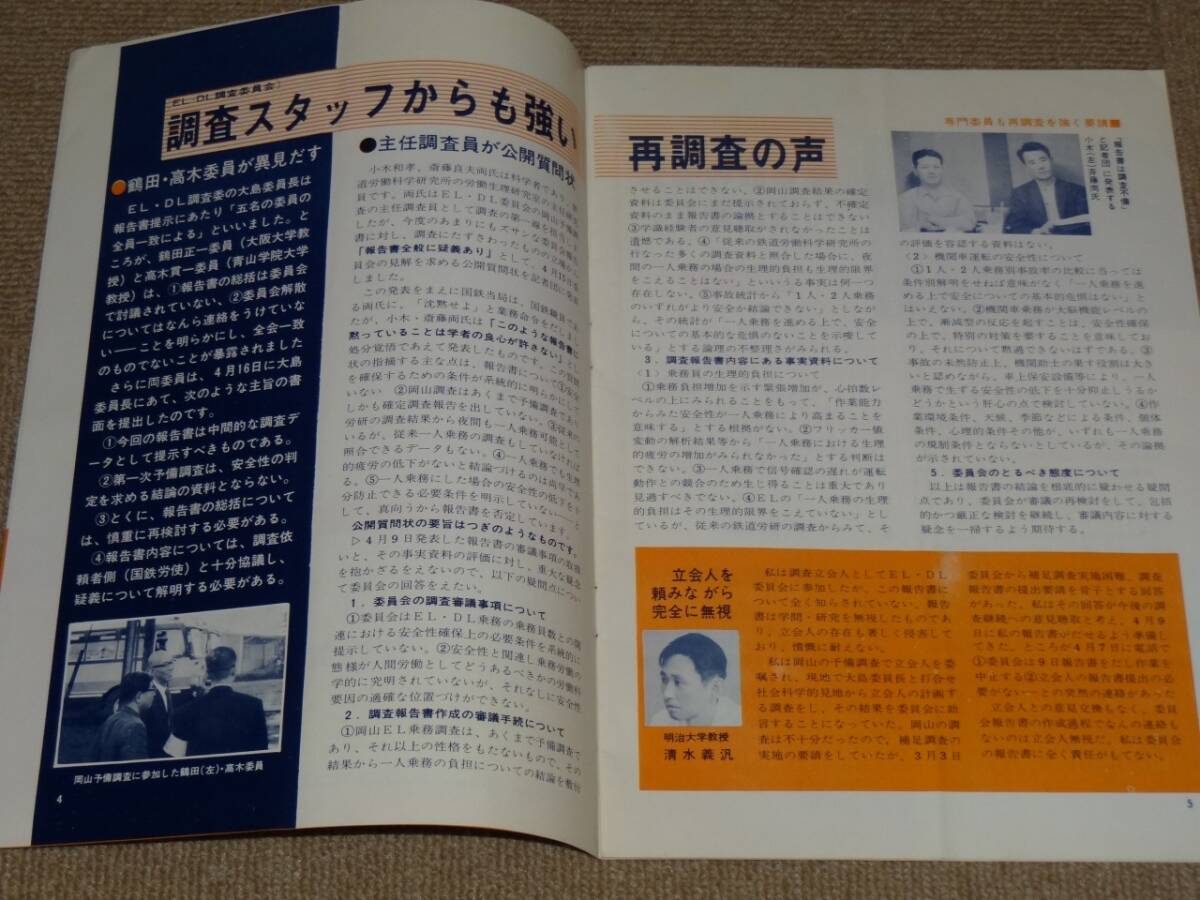 EL・DL調査委員会
調査スタッフからも強い
●鶴田・高木委員が異見だす
EL・DL調査委の大島委員長は
報告書提示にあたり「五名の委員の
全員一致による」といいました。と
ころが、鶴田正一委員（大阪大学教
授）と高木貫一委員（青山学院大学
教授）は、①報告書の総括は委員会
で討議されていない、②委員会解散
についてはなんら連絡をうけていな
い——ことを明らかにし、全会一致
のものでないことが暴露されました
さらに両委員は、4月16日に大島
委員長にあて、次のような主旨の書
面を提出したのです。
①今回の報告書は中間的な調査デ
ータとして提示すべきものである。
②第一次予備調査は、安全性の判
定を求める結論の資料とならない。
③とくに、報告書の総括について
は、慎重に再検討する必要がある。
④報告書内容については、調査依
頼者側（国鉄労使）と十分協議し、
疑義について解明する必要がある。
岡山予備調査に参加した鶴田（左）・高木委員
4
●主任調査員が公開質問状
小木和孝、斎藤良夫両氏は科学者であり、
道労働科学研究所の労働生理研究室の主任研究
員です。両氏はEL・DL委員会の岡山予備調
査の主任調査員として調査の第一線を担当しま
したが、今度のあまりにもズサンな委員会報告
書に対し、調査にたずさわったものの立場から
「報告書全般に疑義あり」として、4月15日委
員会の見解を求める公開質問状を記者団に発表
しました。
この発表をまえに国鉄当局は、国鉄職員であ
る両氏に、「沈黙せよ」と業務命令をだしまし
たが、小木・斎藤両氏は「このような報告書に
黙っていることは学者の良心が許さない」と
処分覚悟であえて発表したものです。この質問
状の指摘する主な点は、報告書について①安全
を確保するための条件が系統的に明らかにして
いない ②岡山調査はあくまで予備調査であり
しかも確定調査報告を出していない。③従来の
労研の調査結果から夜間も一人乗務可能として
いるが、従来一人乗務の調査もしていなければ
照合できるデータもない。④一人乗務でも生理
的疲労の低下がないと結論づけるのは尚早であ
る。⑤一人乗務にした場合の安全性の低下を十
分防止できる必要条件を明示していない——と
して、真向うから報告書を否定しています。
公開質問状の要旨はつぎのようなものです。
▷4月9日発表した報告書の審議事項の取扱
いと、その事実資料の評価に対し、重大な疑念
を抱かざるをえないので、以下の疑問点につい
て委員会の回答をえたい。
1．委員会の調査審議事項について
①委員会はEL・DL乗務の乗務員数との関
連における安全性確保上の必要条件を系統的に
提示していない。②安全性と関連し乗務労働の
態様が人間労働としてどうあるべきかの労働科
学的に究明されていないが、それなしに安全性
要因の適確な位置づけができない。
2．調査報告書作成の審議手続について
①岡山EL乗務調査は、あくまで予備調査で
あり、それ以上の性格をもたないもので、その
結果から一人乗務の負担についての結論を敷衍
再調査の声
専門委員も再調査を強く要請■
「報告書は調査不備」
と記者団に発表する
小木（左）斎藤両氏
させることはできない。②岡山調査結果の確定
資料は委員会にまだ提示されておらず、不確定
資料のまま報告書の論拠とすることはできない
③学識経験者の意見聴取がされなかったことは
遺憾である。④「従来の鉄道労働科学研究所の
行なった多くの調査資料と照合した場合に、夜
間の一人乗務の場合の生理的負担も生理的限界
をこえることはない」といいうる事実は何一つ
存在しない。⑤事故統計から「1人・2人乗務
のいずれがより安全か結論できない」としなが
ら、その統計が「一人乗務を進める上で、安全
についての基本的な危惧のないことを示唆して
いる」とする論理の不整理さがみられる。
3．調査報告書内容にある事実資料について
（1）乗務員の生理的負担について
①乗務員負担増加を示す緊張増加が、心拍数レ
ベルの上にみられることをもって、「作業能力
からみた安全性が一人乗務により高まることを
意味する」とする根拠がない。②フリッカー値
変動の解析結果等から「一人乗務における生理
的疲労の増加がみられなかった」とする判断は
できない。③一人乗務で信号確認の遅れが運転
動作との競合のため生じ得ることは重大であり
見過すべきでない。④ELの「一人乗務の生理
的負担はその生理的限界をこえていない」とし
ているが、従来の鉄道労研の調査からみて、そ
の評価を容認する資料はない。
（2）機関車運転の安全性について
①1人・2人乗務別事故率の比較に当っては
条件別解明をせねば意味がなく「一人乗務を進
める上で安全についての基本的危惧はない」と
はいえない。②機関車乗務が大脳機能レベルの
上で、漸減型の反応を起すことは、安全性確保
の上で、特別の対策を要することを意味してお
り、それについて黙過できないはずである。③
事故の未然防止上、機関助士の果す役割は大き
いと認めながら、車上保安設備等により、一人
乗務で生ずる安全性の低下を十分抑止しうるか
どうかという肝心の点で検討していない。④作
業環境条件、天候、季節などによる条件、個体
条件、心理的条件その他が、いずれも一人乗務
の規制条件とならないとしているが、その論拠
が示されていない。
5．委員会のとるべき態度について
以上は報告書の結論を根底的に疑わせる疑問
点であり、委員会が審議の再検討をして、包括
的かつ厳正な検討を継続し、審議内容に対する
疑念を一掃するよう期待する。
立会人を
頼みながら
完全に無視
明治大学教授
清水義汎
私は調査立会人としてEL・DL
委員会に参加したが、この報告書に
ついて全く知らされていない。報告
書は学問・研究を無視したものであ
り、立会人の存在も著しく侵害して
おり、憤慨に耐えない。
私は岡山の予備調査で立会人を委
嘱され、現地で大島委員長と打合せ
社会科学的見地から立会人の計画す
る調査をし、その結果を委員会に助
言することになっていた。岡山の調
査は不十分だったので、補足調査の
実施の要請をしていたが、3月3日
委員会から補足調査実施困難、調査
報告の提出要請を骨子とする回答
があった。私はその回答が今後の調
査継続への意見聴取と考え、4月9
日に私の報告書がだせるよう準備し
てきた。ところが4月7日に電話で
①委員会は9日報告書をだし作業を
中止する②立会人の報告提出の必
要がない——との突然の連絡があった
立会人との意見交換もなく、委員
会報告書の作成過程でなんの連絡も
ないのは立会人無視だ。私は委員会
の報告書に全く責任がもてない。
5